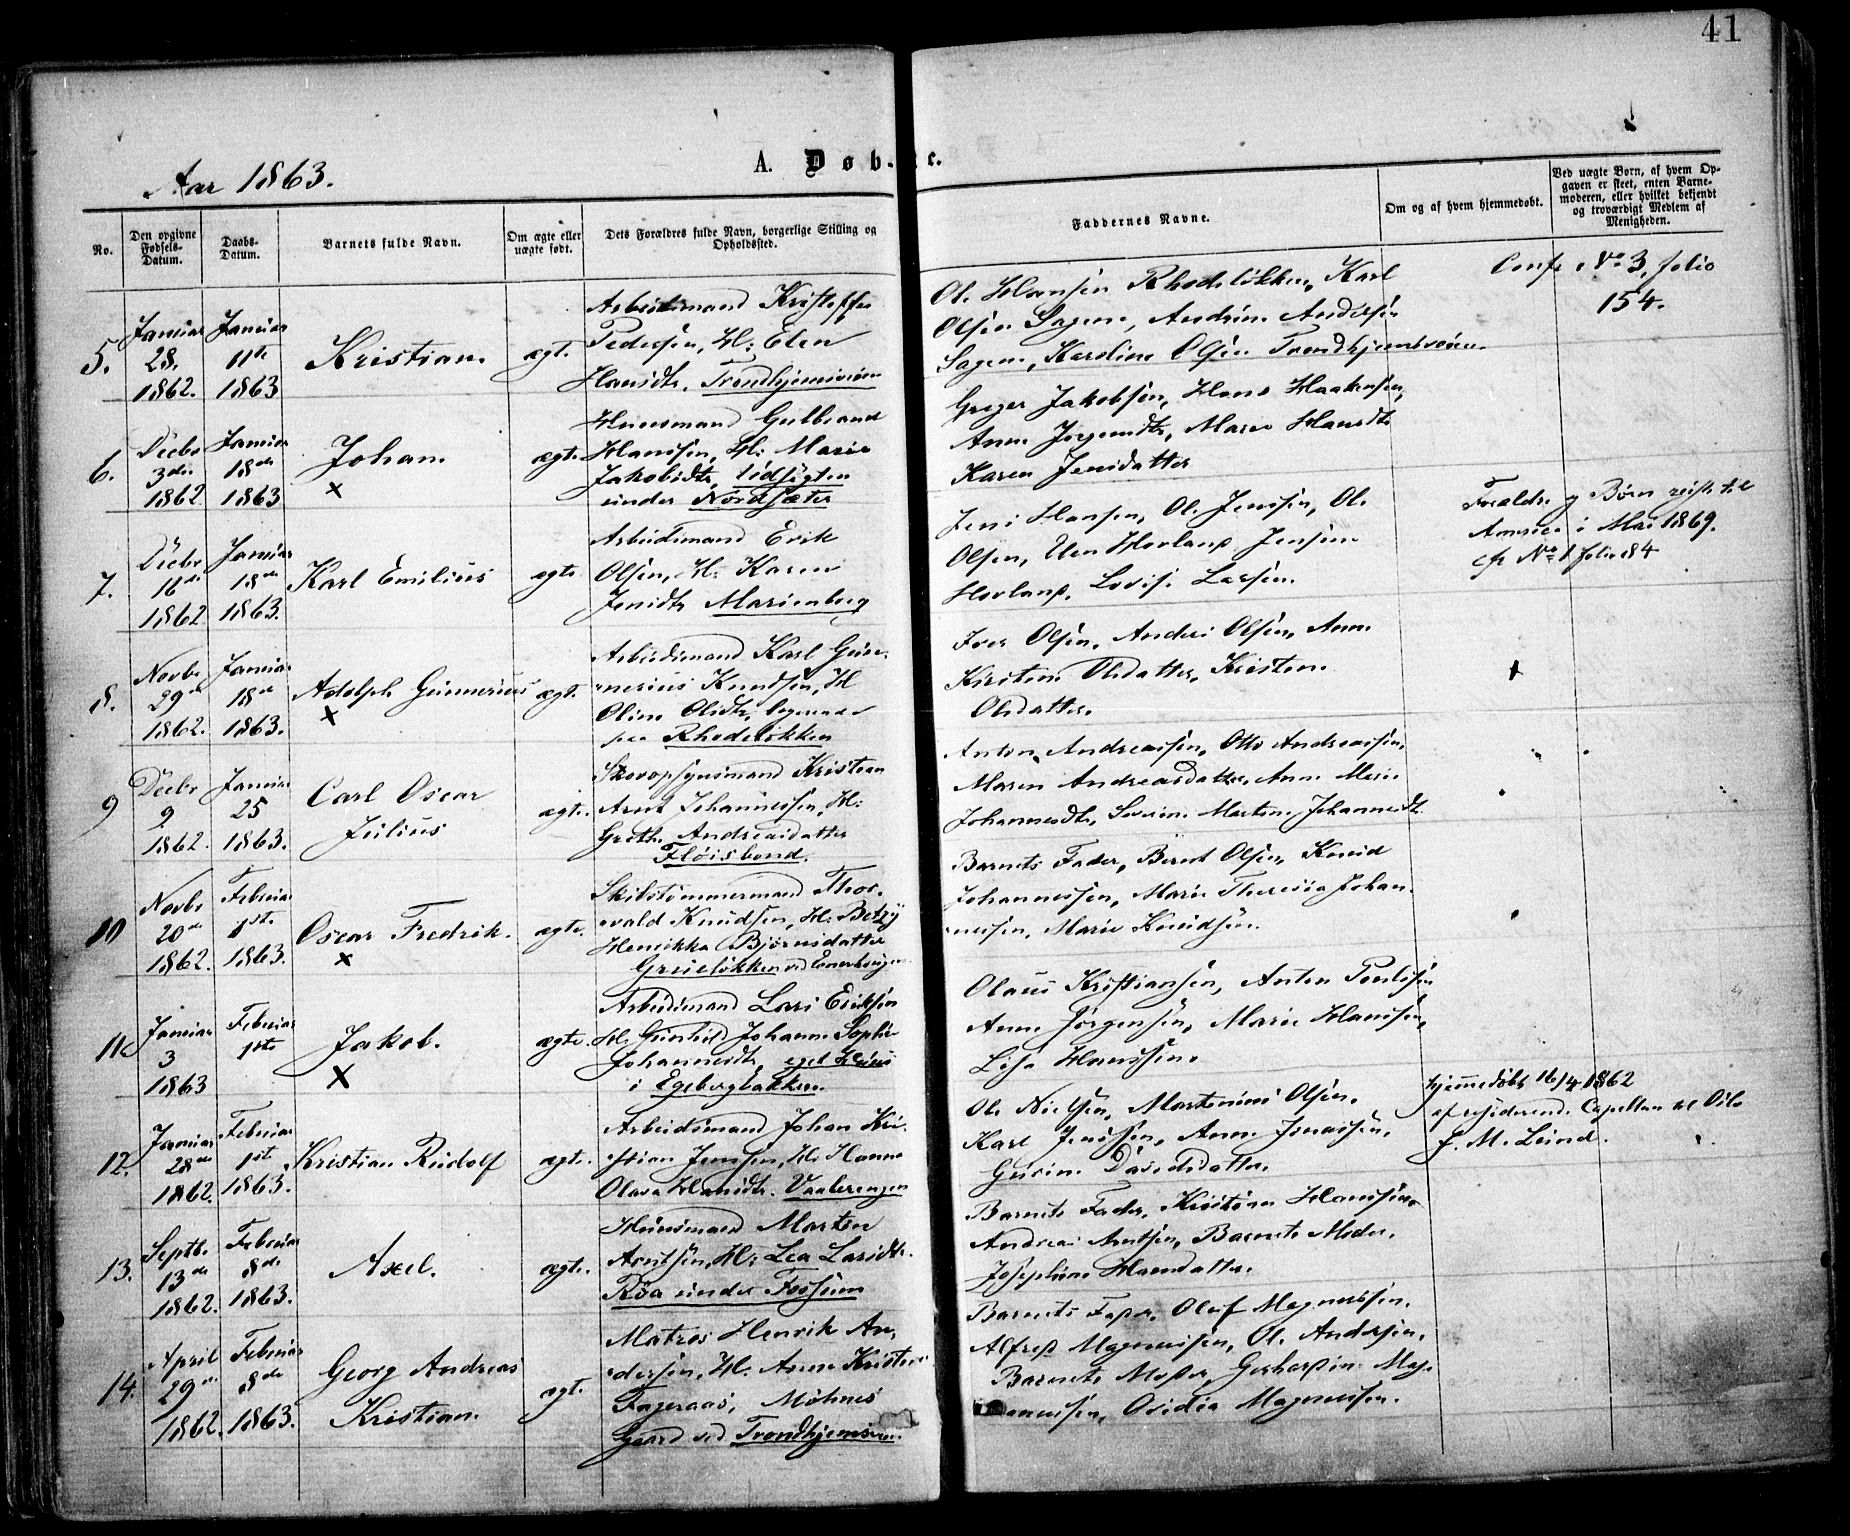 41
Aar 1863.
A. Døb-
e.
No.
Den opgivne Fødsels-Datum.
Daabs-Datum.
Barnets fulde Navn.
Om ægte eller uægte født.
Dets Forældres fulde Navn, borgerlige Stilling og Opholdssted.
Faddernes Navne.
Om og af hvem hjemmedøbt.
Ved uægte Børn, af hvem Opgaven er skeet, enten Barnemoderen, eller hvilket bekjendt og troværdigt Medlem af Menigheden.
5.
Januar
28.
1862.
Januar
11te
1863
Kristian.
ægt.
Arbeidsmand Kristoffer
Pedersen, H: Elen
Hansdtr. Trondhjemsveien
Ole Hansen Rhodeløkken, Karl
Olsen Sagene, Andrine Andersen
Sagene, Karoline Olsen Trondhjemsveien.
Confr. No 3, folio
154.
6.
Decbr
3die
1862
Januar
18de
1863
Johan.
x
ægte
Huusmand Gulbrand
Hanssen, H: Marie
Jakobsdtr, Udsigten
under Nordsæter
Greger Jakobsen, Hans Haakensen,
Anne Jørgensdtr, Maren Hansdtr
Karen Jensdatter
7.
Decbr
16de
1862
Januar
18de
1863.
Karl Emilius
ægte
Arbeidsmand Erik
Olsen, H: Karen
Jensdtr Marienborg
Jens Hansen, Ole Jenssen, Ole
Olsen, Hovland, Jensine
Hovland, Lovise Larsen.
Forældre og Børn reiste til
America i Mai 1869.
cfr No 1 folio 84
8.
Novbr
29de
1862.
Januar
18de
1863.
Adolph Gunnerius
x
ægt.
Arbeidsmand Karl Gun-
nerius Knudsen, H
Oline Olsdtr, logerende
paa Rhodeløkken
Iver Olsen, Anders Olsen, Anne
Kirstine Olsdatter, Kristine
Olsdatter.
x
9
Decbr
9
1862.
Januar
25
1863.
Carl Oscar
Julius
ægte.
Skovopsynsmand Kristian
Arnt Johannessen, H:
Grethe Andreasdatter
Fløisbond.
Anton Andreassen, Otto Andreassen,
Maren Andreasdatter, Anne Marie
Johannesdtr, Severine Martine Johannesdtr
10
Novbr
20de
1862.
Februar
1ste
1863.
Oscar Fredrik.
x
ægte.
Skibstømmermand Thor-
vald Knudsen, H: Betzy
Henrikka Bjørnsdatter
Grüneløkken ved Enerhaugen
Barnets Fader, Bernt Olsen, Knud
Johannessen, Marie Theresia Johan-
nessen, Marie Knudsen.
11.
Januar
3
1863
Februar
1ste
Jakob.
x
ægte.
Arbeidsmand Lars Eriksen
H: Gunhild Johanne Sophie
Johannesdtr, eget Huus
i Egebergbakken.
Olaus Kristiansen, Anton Poulsen
Anne Jørgensen, Marie Hanssen,
Lise Hanssen.
12.
Januar
28de
1862.
Februar
1ste
1863.
Kristian Rudolf
ægte.
Arbeidsmand Johan Kri-
stian Jenssen, H: Hanne
Olava Hansdtr. Vaalerengen
Ole Nielsen, Martinius Olsen,
Karl Jenssen, Anne Jonassen,
Gurine Davidsdatter.
Hjemmedøbt 16/4 1862
af residerende Capellan til Oslo
M. Lund.
13.
Septbr.
13de
1862.
Februar
8de
1863.
Axel.
ægte.
Huusmand Martin
Arntsen, H: Lea Larsdtr.
Røa under Fossum
Barnets Fader, Kristian Hanssen,
Andreas Arntsen, Barnets Moder,
Josephine Hansdatter.
14.
April
29de
1862.
Februar
8de
1863.
Georg Andreas
Kristian.
ægt.
Matros Henrik An-
dersen, H: Anne Kristine
Fageraas, Møhnes
Gaard ved Trondhjemsveien.
Barnets Fader, Oluf Magnussen,
Alfred Magnussen, Ole Andersen,
Barnets Moder, Gerhardine Mag-
nussen, Ovidia Magnussen.